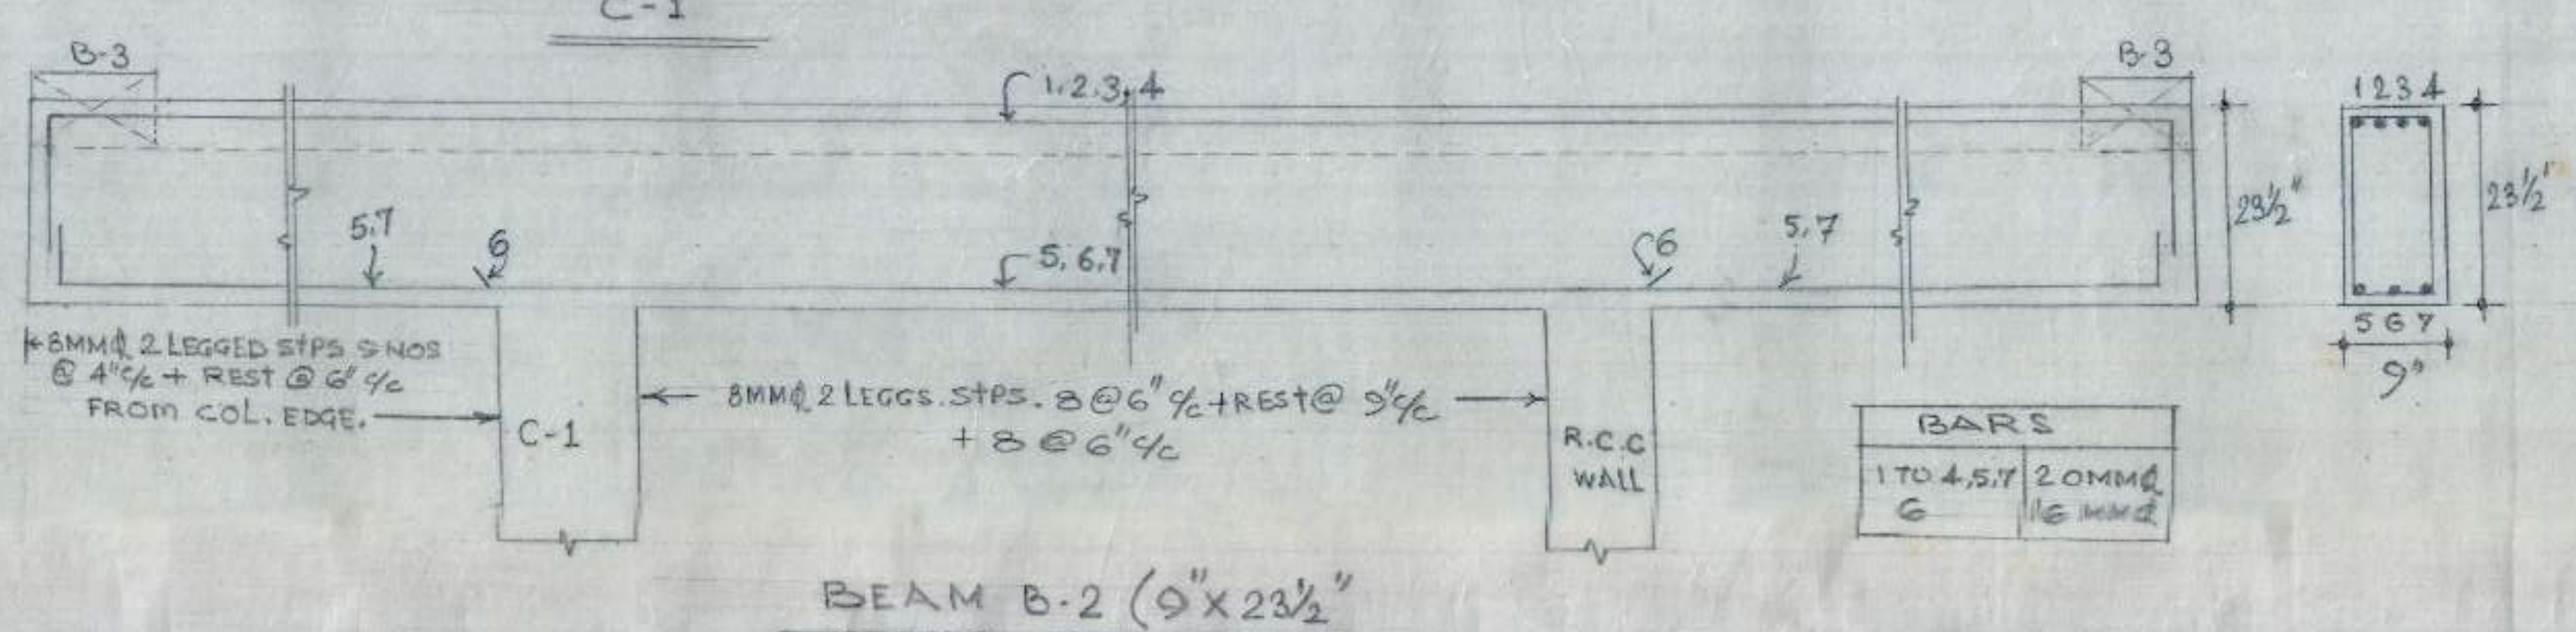 C-1
B-3
B-3
1,2,3,4
1 2 3 4
5,7
6
5,6,7
6
5,7
23½"
23½"
5 6 7
9"
8MMΦ 2 LEGGED STPS 9 NOS
@ 4" c/c + REST @ 6" c/c
FROM COL. EDGE.
8MMΦ 2 LEGGS. STPS. 8 @ 6" c/c + REST @ 9" c/c
+ 8 @ 6" c/c
C-1
R.C.C
WALL
BARS
1 TO 4,5,7 20MMΦ
6 16 MMΦ
BEAM B-2 (9" X 23½"